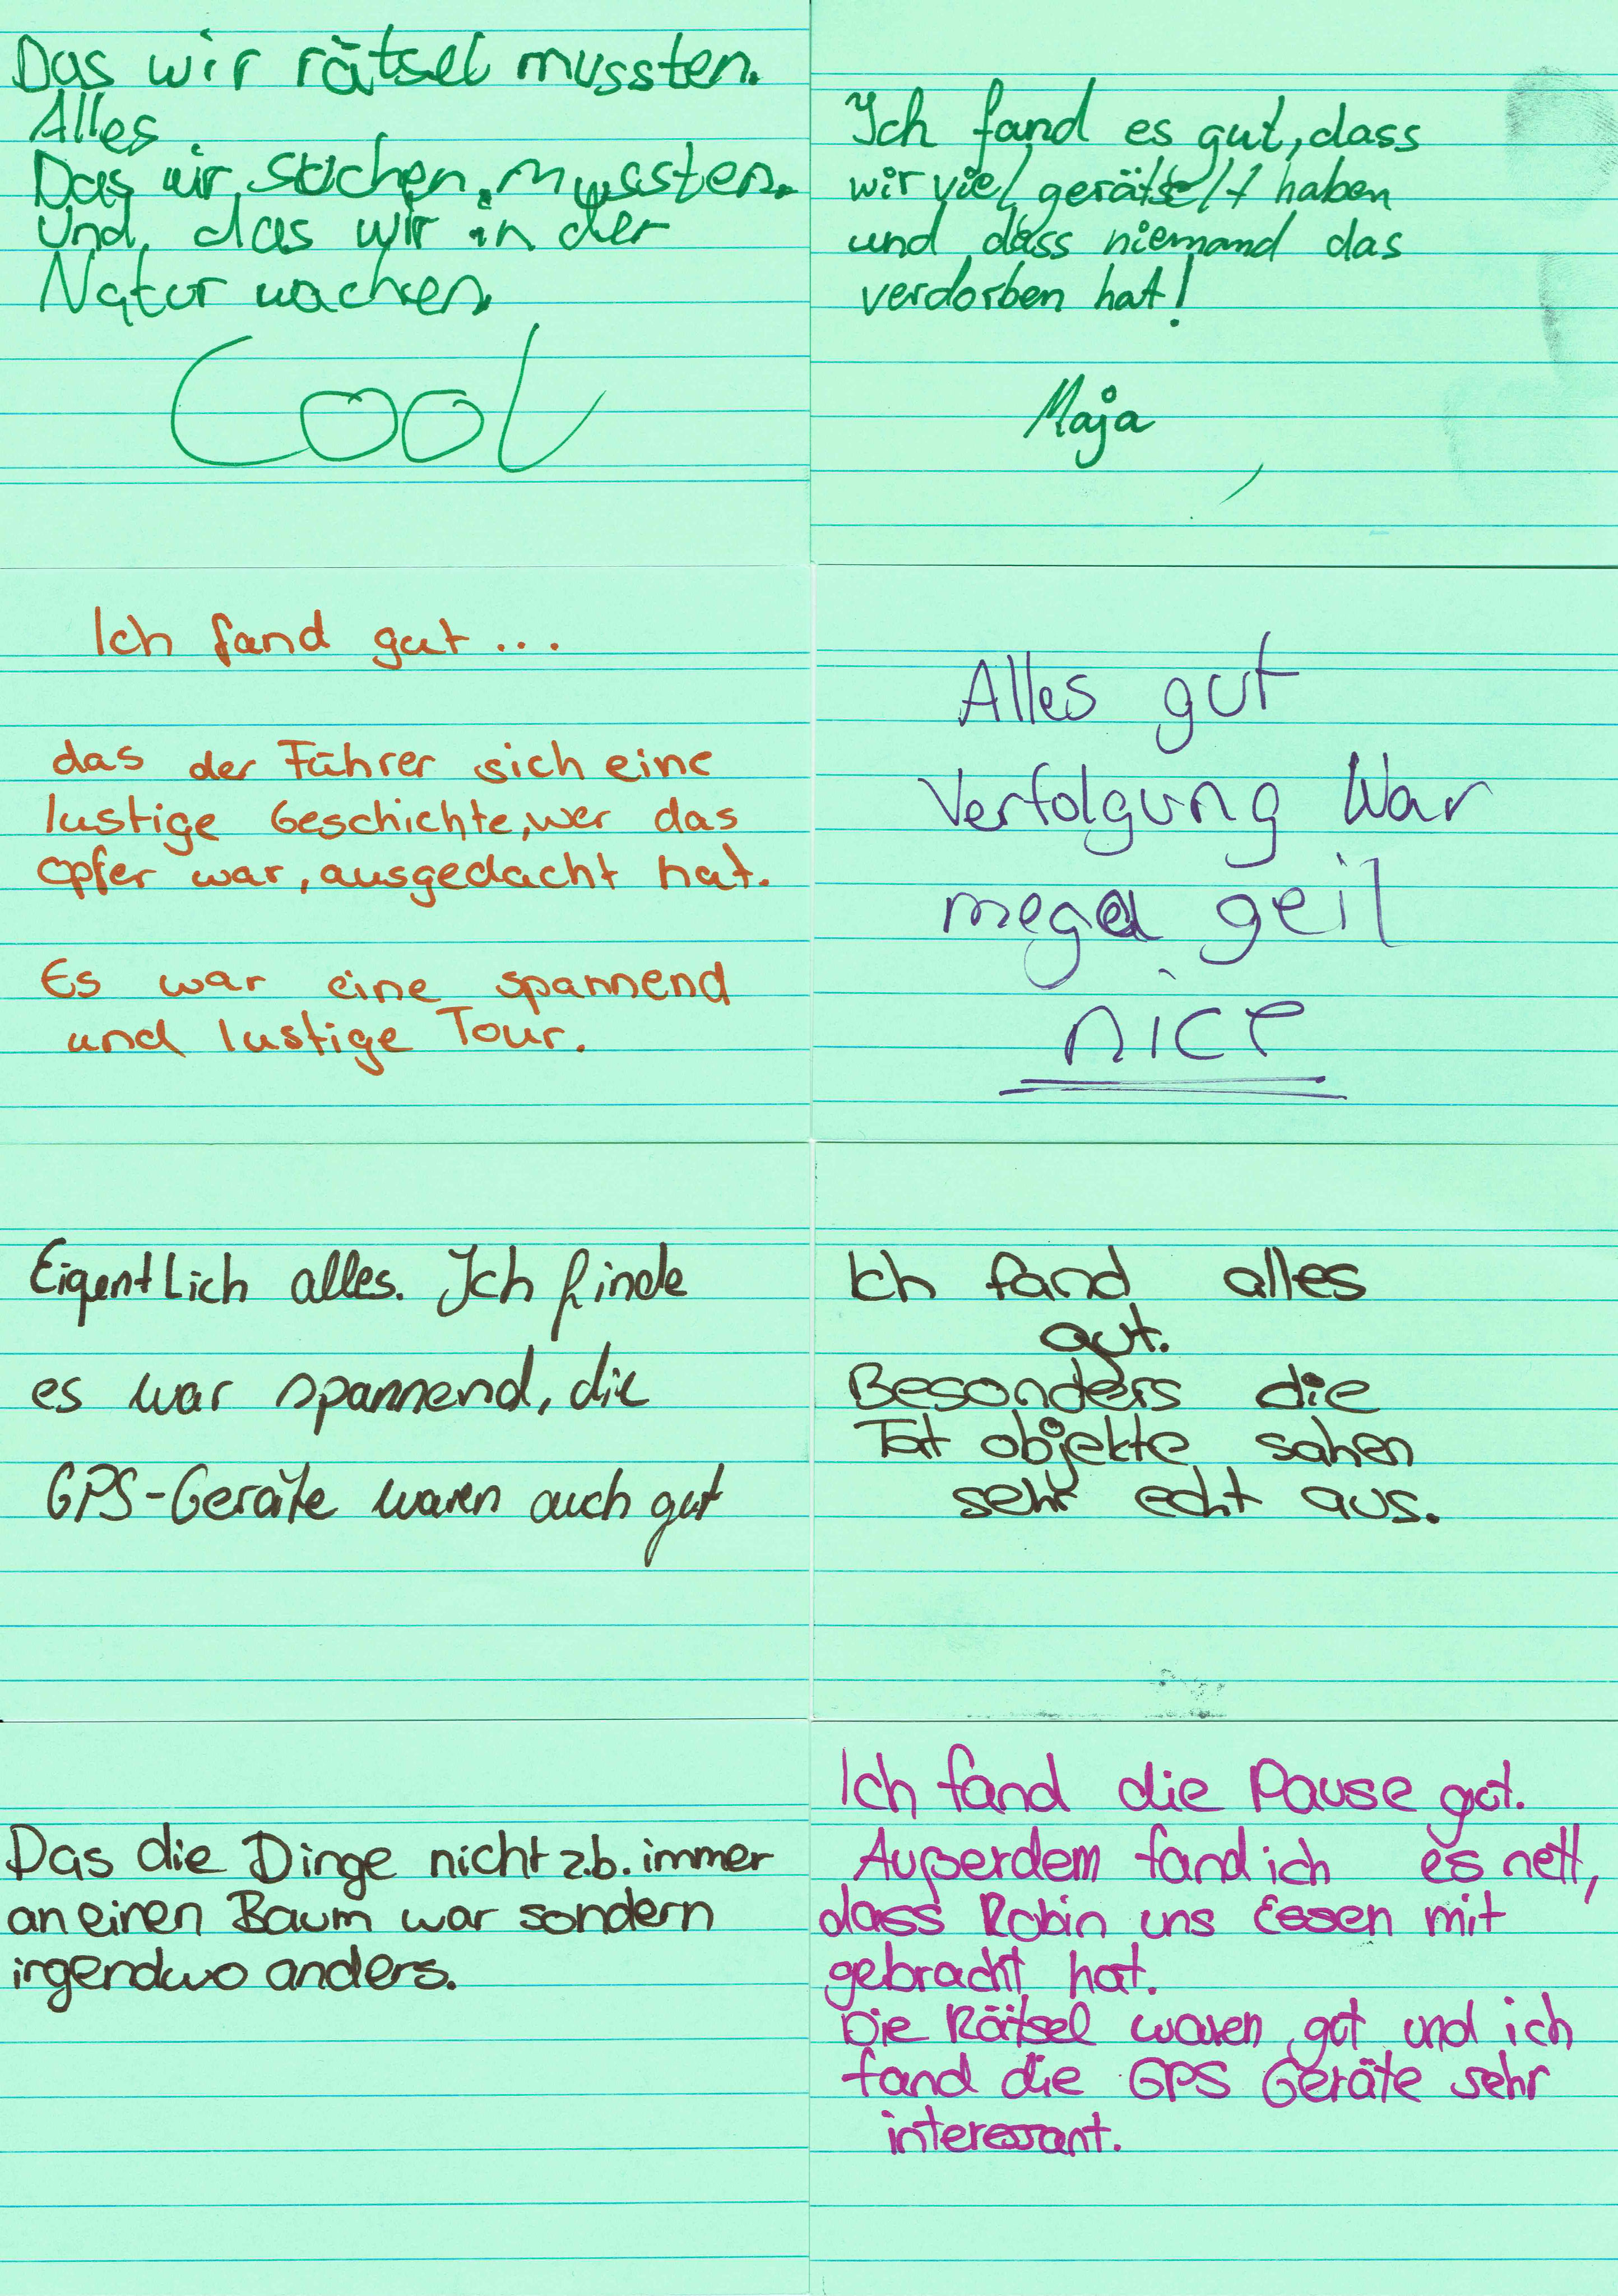 Das wir rätsel mussten.
Alles
Das wir suchen mussten.
Und das wir in der
Natur wachren.
Cool
Ich fand es gut, dass
wir viel gerätselt haben
und dass niemand das
verdorben hat!
Maja
Ich fand gut...
das der Führer sich eine
lustige Geschichte, wer das
opfer war, ausgedacht hat.
Es war eine spannend
und lustige Tour.
Alles gut
Verfolgung War
mega geil
nice
Eigentlich alles. Ich finde
es war spannend, die
GPS-Geräte waren auch gut
Ich fand alles
gut.
Besonders die
Tat objekte sahen
sehr echt aus.
Das die Dinge nicht z.b. immer
an einen Baum war sondern
irgendwo anders.
Ich fand die Pause gut.
Außerdem fand ich es nett,
dass Robin uns Essen mit
gebracht hat.
Die Rätsel waren gut und ich
fand die GPS Geräte sehr
interessant.